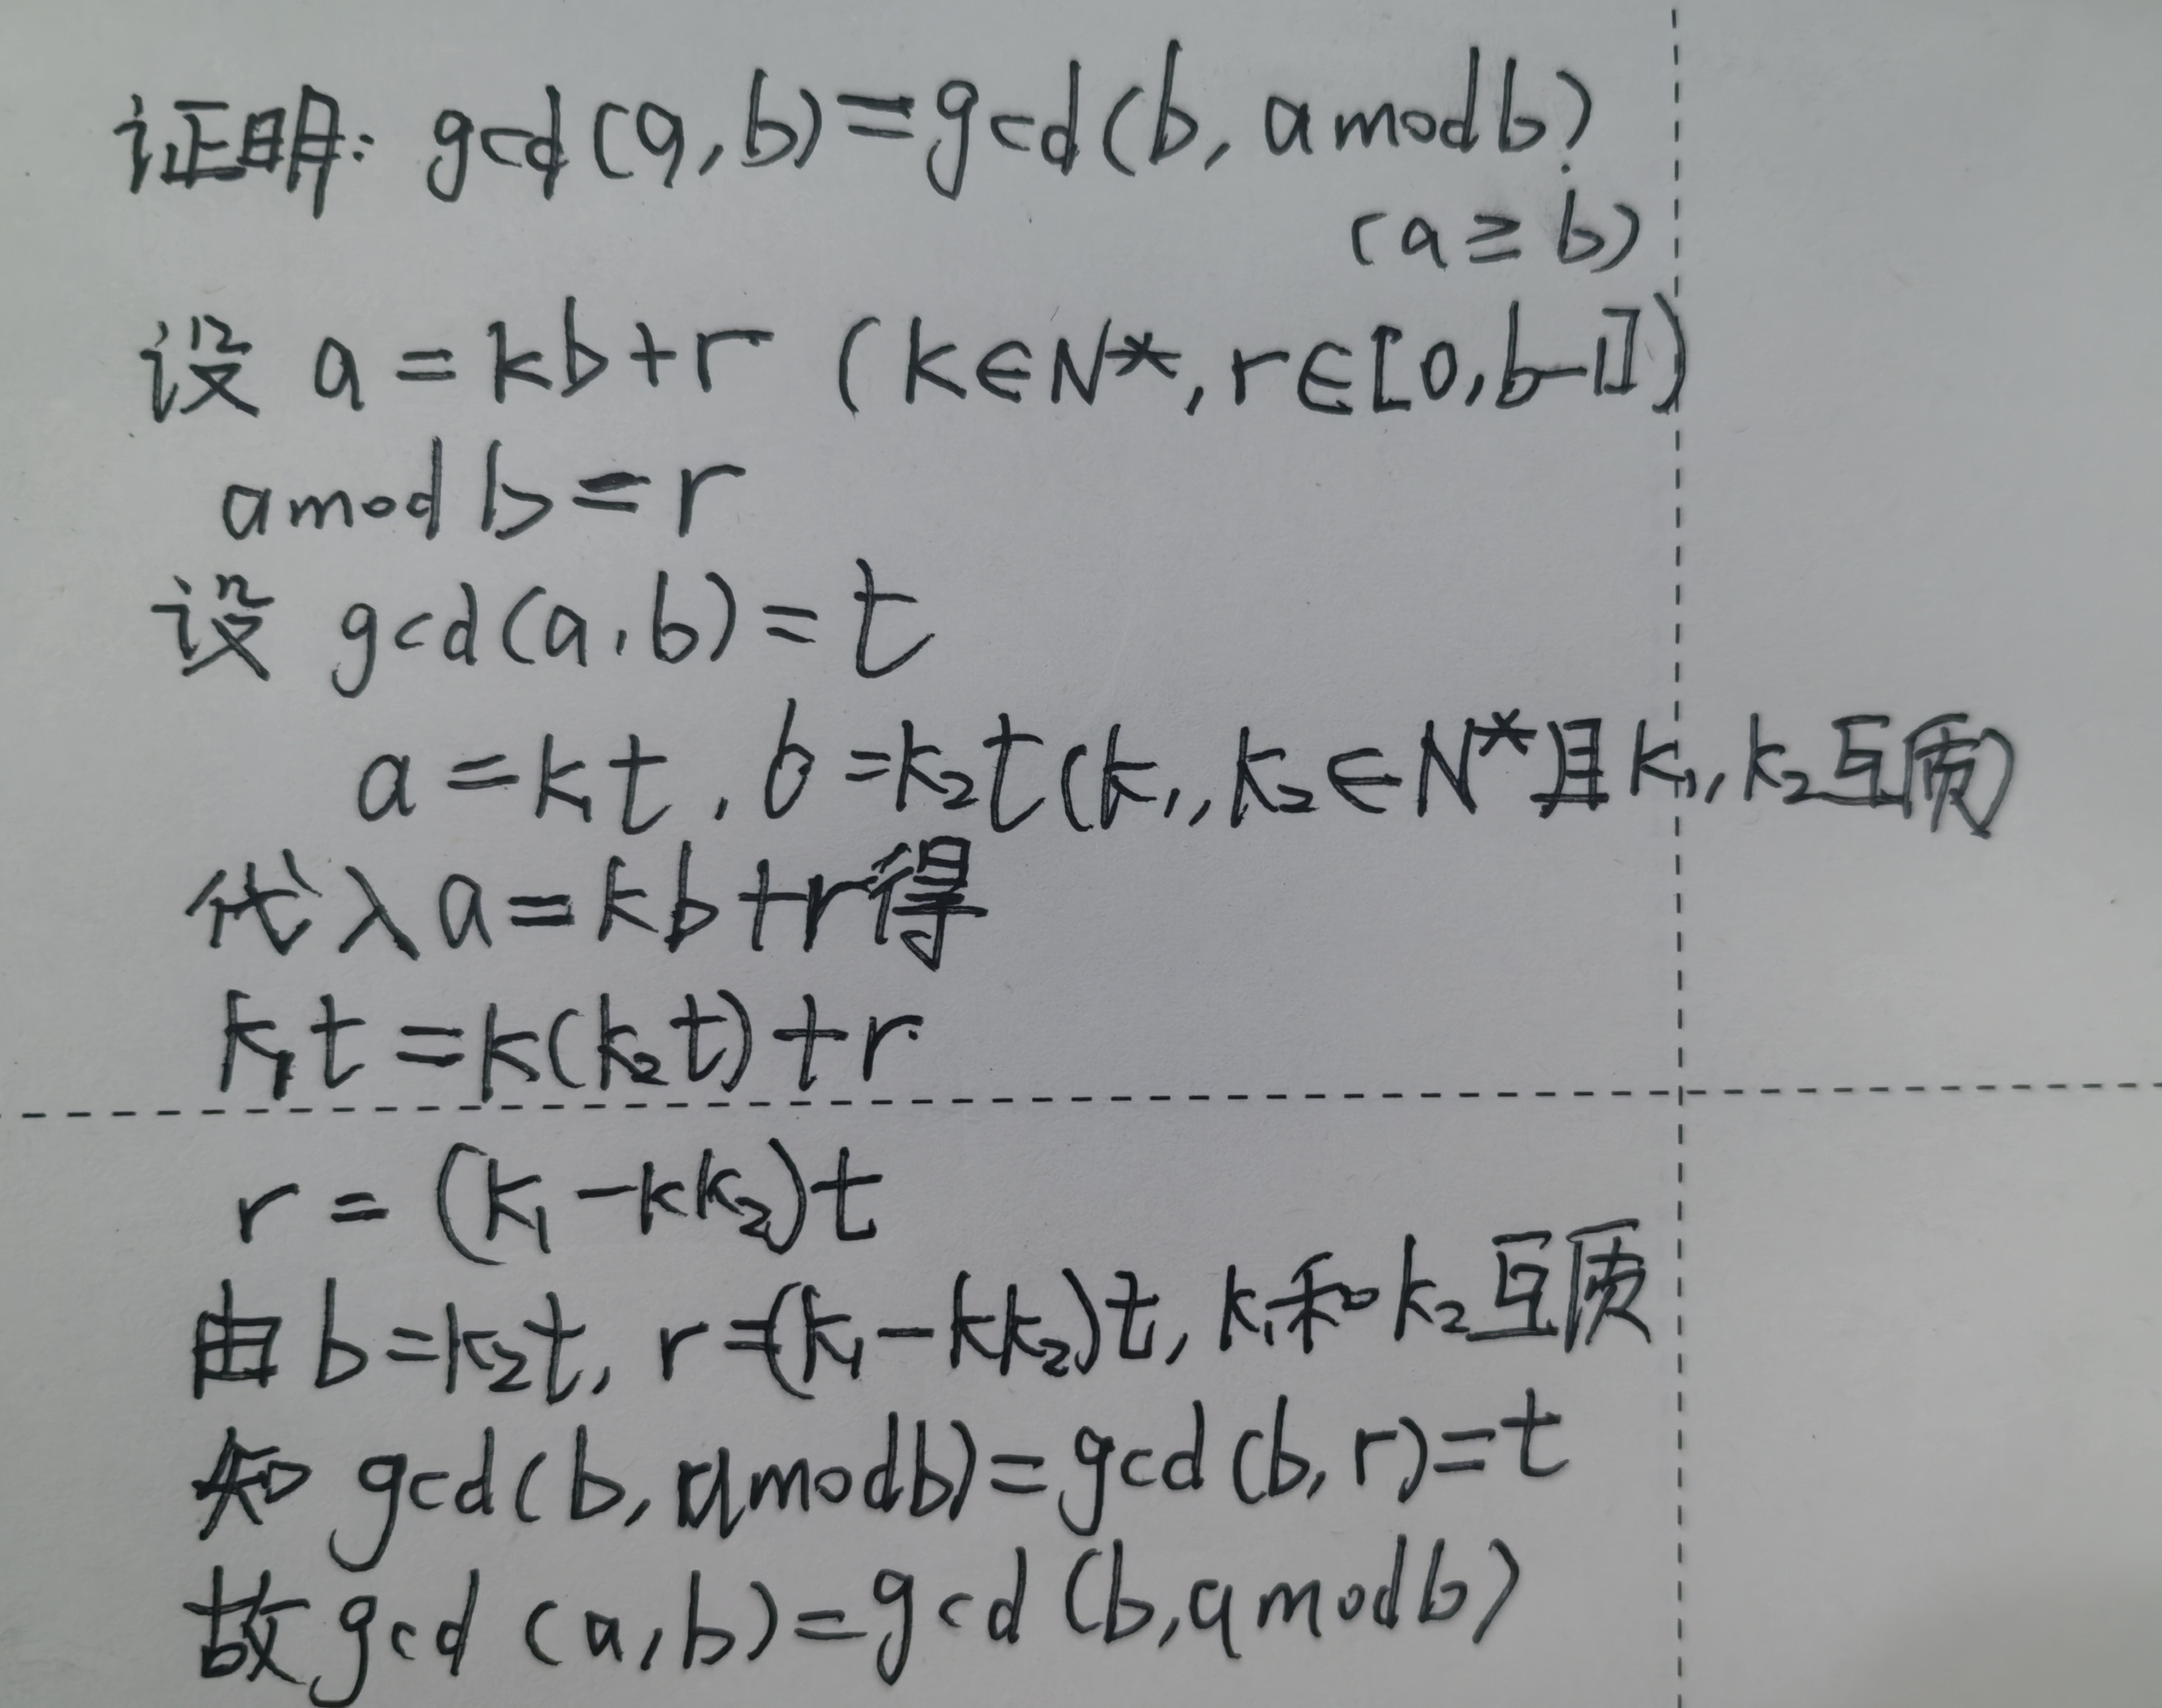 证明: gcd(a,b)=gcd(b, a mod b)
(a≥b)
设 a=kb+r (k∈N*, r∈[0,b-1])
a mod b=r
设 gcd(a,b)=t
a=k₁t, b=k₂t(k₁,k₂∈N*且k₁,k₂互质)
代入a=kb+r得
k₁t=k(k₂t)+r
r=(k₁-kk₂)t
由b=k₂t, r=(k₁-kk₂)t, k₁和k₂互质
知 gcd(b, a mod b)=gcd(b,r)=t
故gcd(a,b)=gcd(b,a mod b)